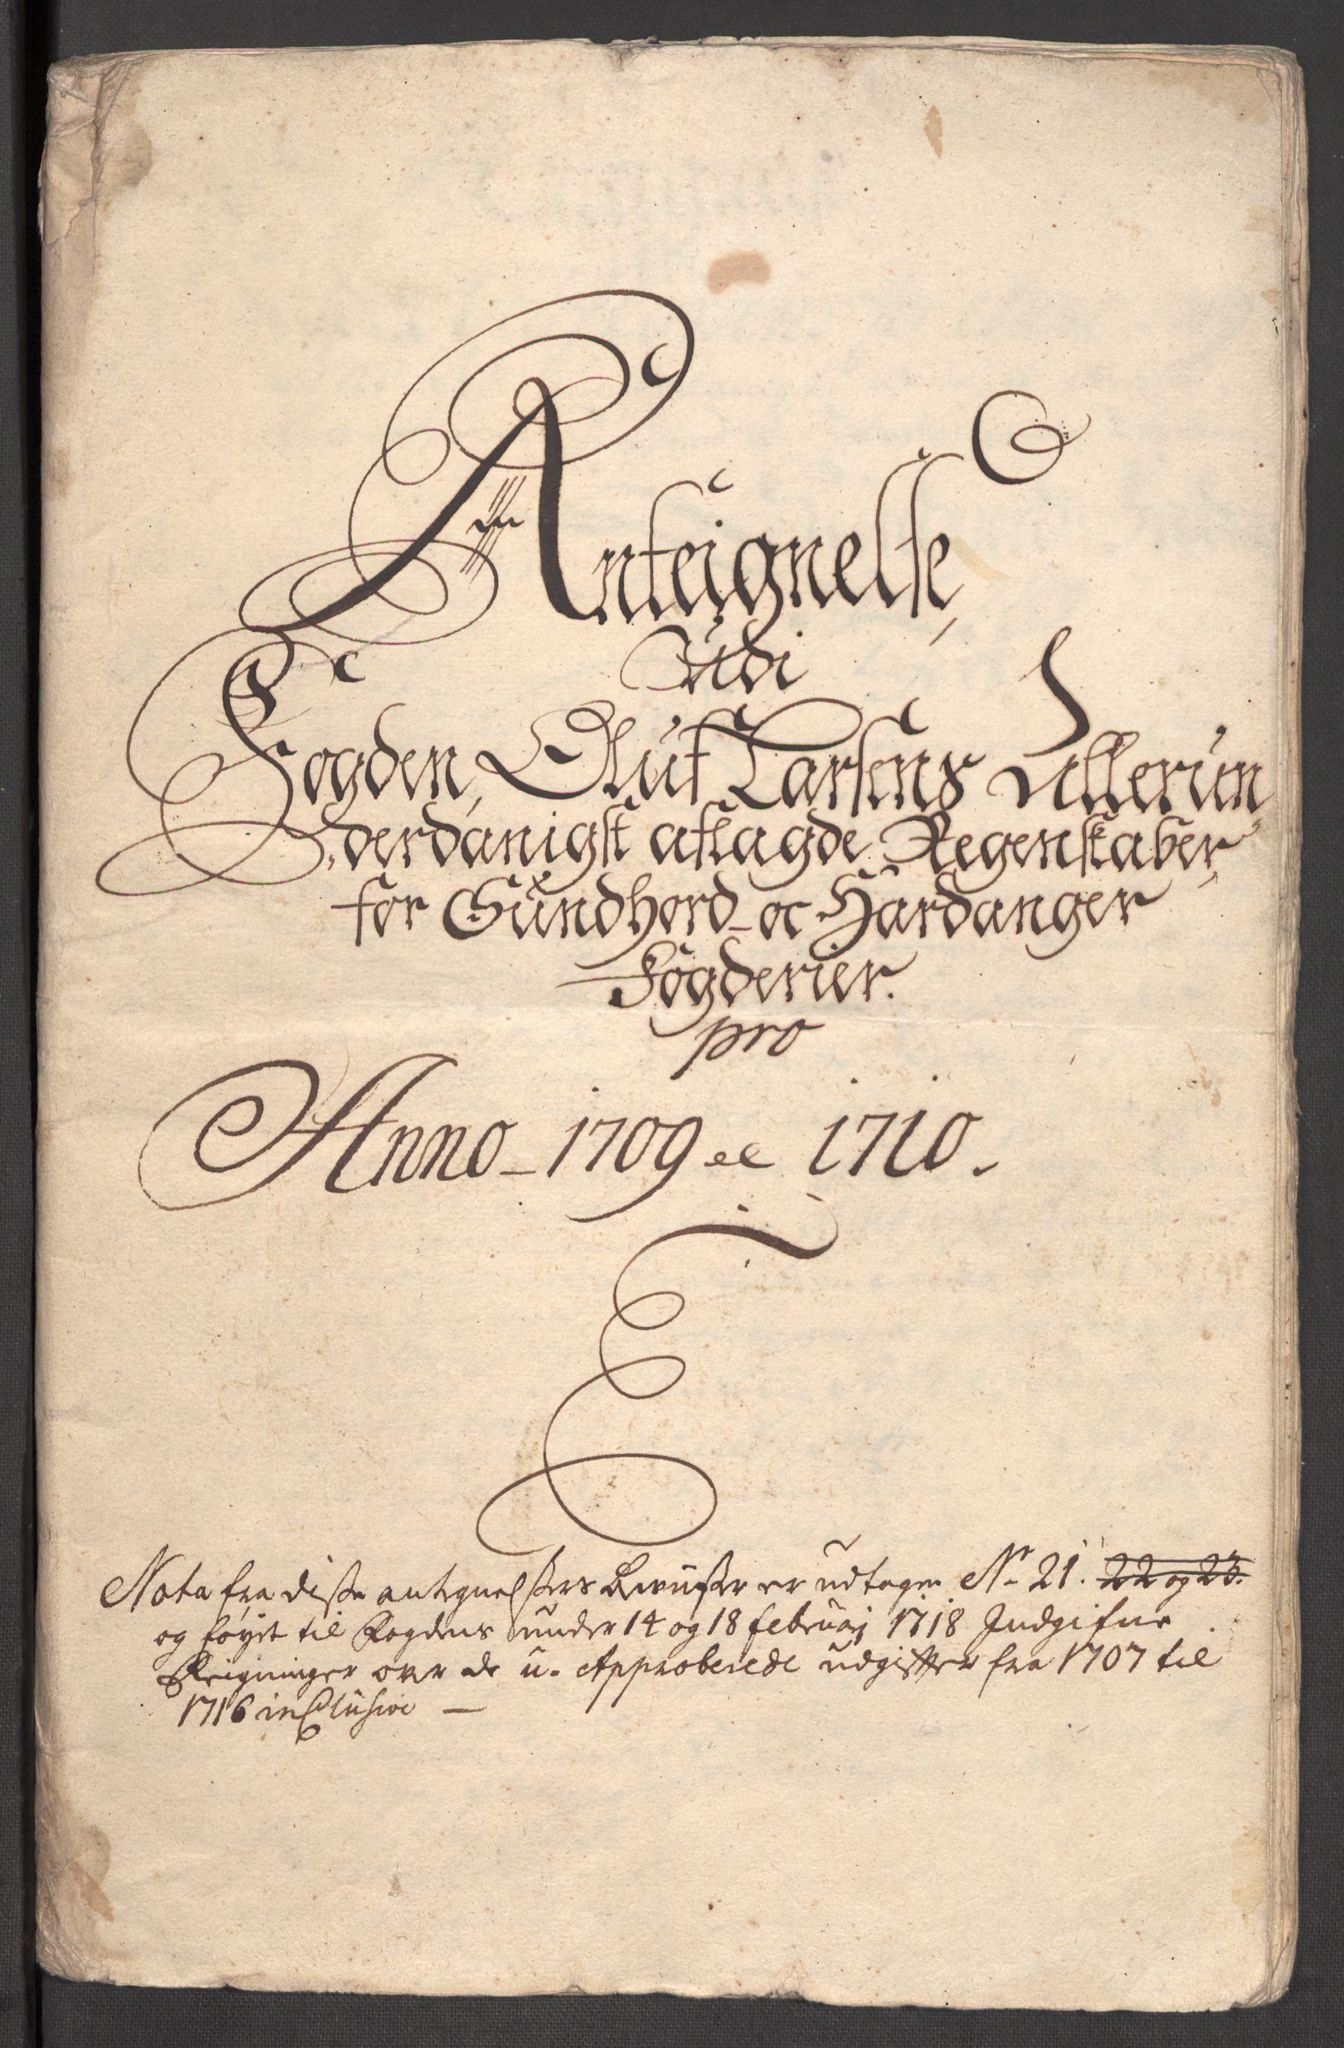 Anteignelse,
Udi
Fogden, Oluf Larsens Allerun,
derdanigst aflagde Regenskaber,
for Sundhord- oc Hardanger
Fogderier.
pro
Anno- 1709 et 1710.
Nota fra disse antegnelssers Beviisser er udtagen No 21. 22 og 23.
og føyet til Fogdens under 14 og 18 februarj 1718 Indgifne
Reigninger over de u-Approberede udgifter fra 1707 til
1716 inclusive —